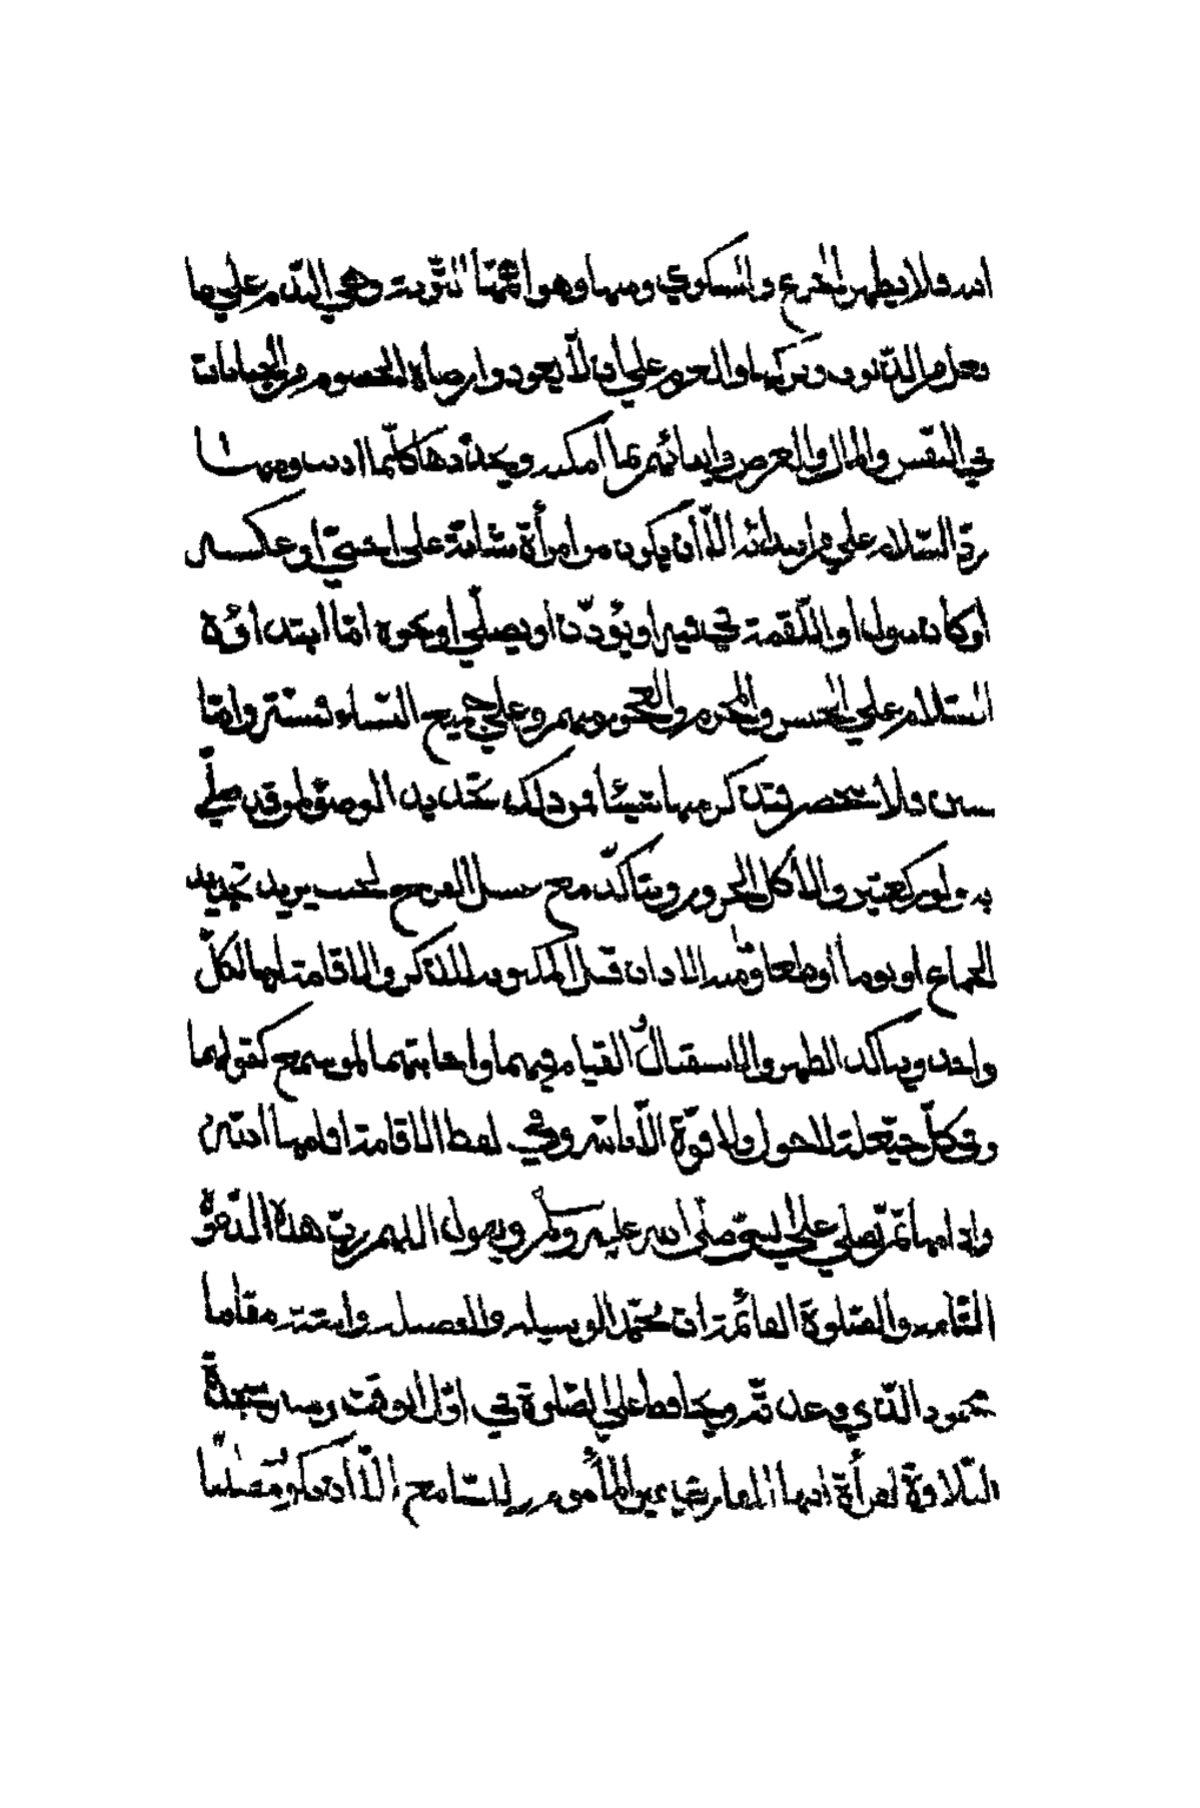 الله ولا يظهر الجزع والشكوي ومنها وهو اهمّها التّوبة وهي النّدم علي ما
فعل من الذّنوب وتركها والعزم علي أن لا يعود وارضاء الخصوم من الجنايات
في النّفس والمال والعرض وايمائهم بما أمكنه ويجدّدها كلّما اذنب ومنها
ردّ السّلام علي من ابتدائه الّا أن يكون من امرأة شابّة علي اجنبيّ او عكسه
أو كان يبول او اللّقمة في فيه او يؤذّن او يصلّي او نحوه امّا ابتداؤه
السّلام علي الجنس والمحرم والعجوز مهم وعلي جميع النّساء فسنّة وامّا
سنن فلا تنحصر فنذكر منها شيئا من ذلك تجديد الوضوء لمن قد صلّي
به ولو ركعتين والأكل الجزور ويتأكّد مع غسل الفرج لجنب يريد تجديد
الجماع او نوما أو طعاما ومنه الاذان قبل المكتوبة للذكر والاقامة لها لكلّ
واحد ويتأكد الطهر والاستقبال القيام فيهما واجابتهما لمن سمع كقولهما
وفي كلّ حيعلة لا حول ولا قوّة الّا بالله وفي لفظ الاقامة اقامها الله
وادامها ثمّ يصلي علي النبيّ صلّى الله عليه وسلم ويقول اللهم ربّ هذه الدّعوة
التّامة والصّلوة القائمة ات محمّد الوسيلة والفضيلة وابعثه مقاما
محمود الّذي وعدته ويحافظ علي الصّلوة في اوّل الوقت وسجدة
التّلاوة لقرأة ايها القارئ غير المأموم وللسّامع الّا أن يكون مصلّيا